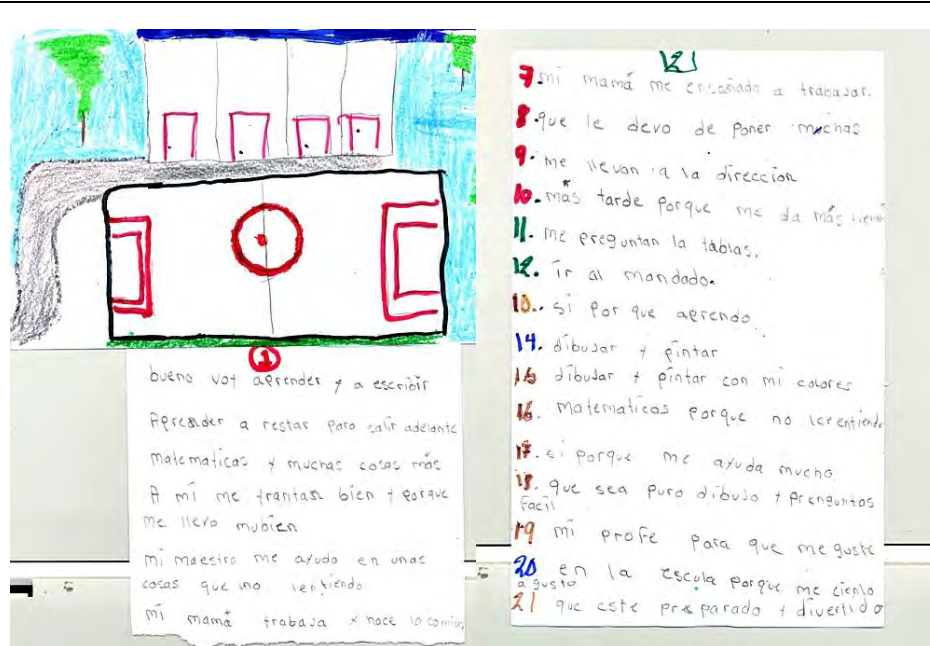 1
bueno voy aprender y a escribir
Aprender a restar para salir adelante
matematicas y muchas cosas más
A mí me trantan bien y porque
me llevo mubíen
mi maestro me ayuda en unas
cosas que no lentiendo
mi mamá trabaja y hace la comida
2
7. mi mamá me enseñado a trabajar.
8. que le devo de poner muchas
9. me llevan a la dirección
10. más tarde porque me da más
11. me preguntan la tablas.
12. ir al mandado.
10.. si por que aprendo.
14. dibujar y pintar
15 dibujar y pintar con mi colores
16. matematicas porque no le entiendo
17. si porque me ayuda mucho
18. que sea puro dibujo y prenguntas
facil
19 mi profe para que me guste
20 en la escula porque me ciento
a gusto
21 que este preparado y divertido